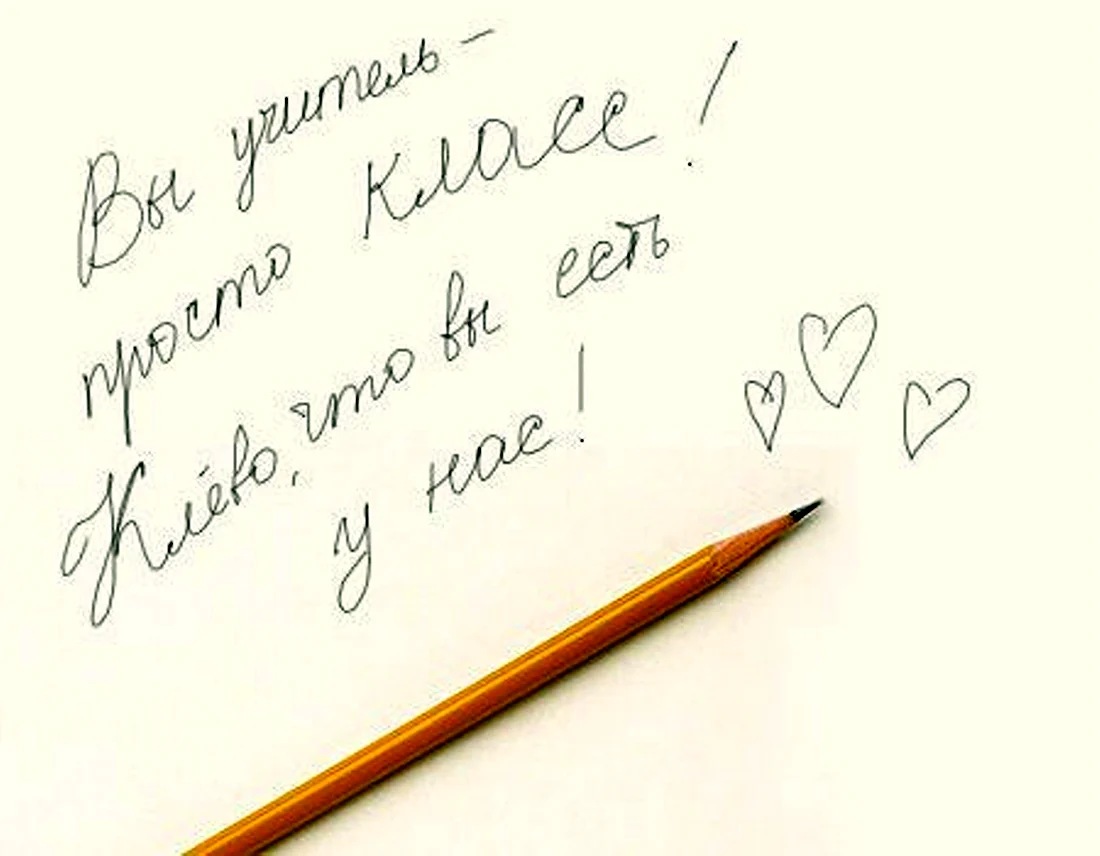 Вы учитель -
просто класс!
Клёво, что вы есть
у нас!